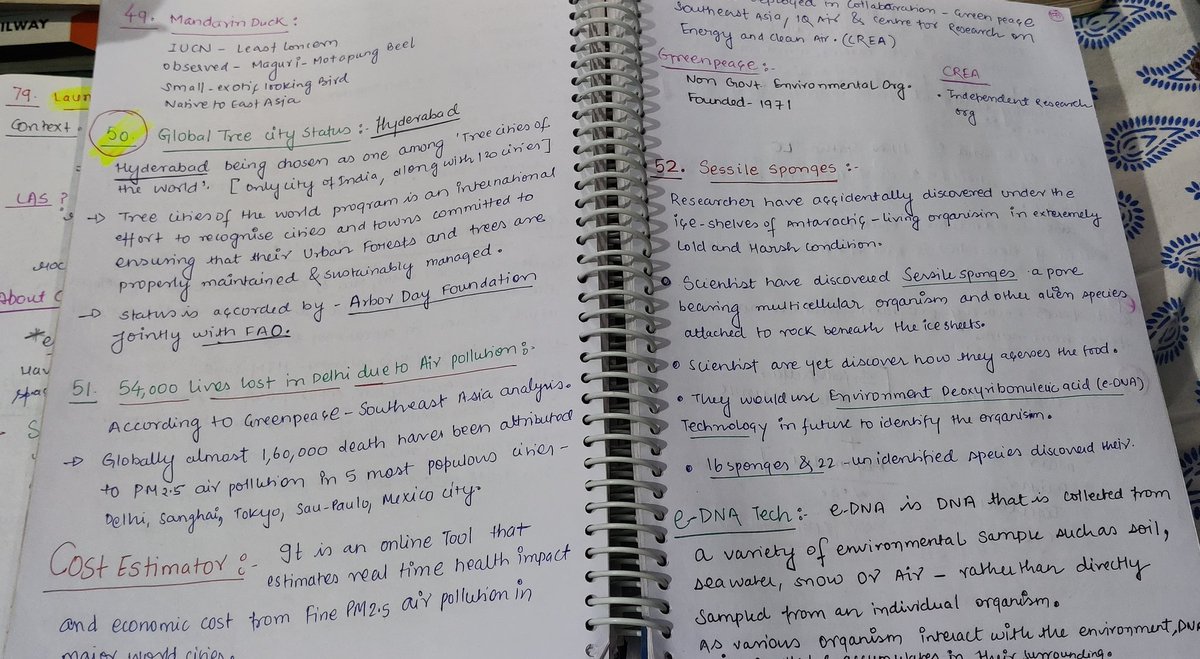 ILWAY
79. Laun
Context.
LAS ?
About C
49. Mandarin Duck :
IUCN - Least Concern
observed - Maguri-Motapung Beel
Small-exotic looking Bird
Native to East Asia
50. Global Tree city Status :- Hyderabad
Hyderabad being chosen as one among 'Tree cities of
the World'. [Only city of India, along with 120 cities]
→ Tree cities of the world program is an international
effort to recognise cities and towns committed to
ensuring that their Urban Forests and trees are
properly maintained & sustainably managed.
→ Status is accorded by - Arbor Day Foundation
jointly with FAO.
51. 54,000 lives lost in Delhi due to Air pollution :-
According to Greenpeace - Southeast Asia analysis.
→ Globally almost 1,60,000 death haves been attributed
to PM2.5 air pollution in 5 most populous cities -
Delhi, Sanghai, Tokyo, Sau-Paulo, Mexico city.
Cost Estimator :- It is an online Tool that
estimates real time health impact
and economic cost from fine PM2.5 air pollution in
major world cities.
deployed in Collaboration - Green peace
Southeast Asia, IQ Air & Centre for Research on
Energy and Clean Air. (CREA)
Greenpeace :-
Non Govt. Environmental Org.
Founded - 1971
CREA
• Independent Research
org
52. Sessile Sponges :-
Researcher have accidentally discovered under the
ice-shelves of Antaractic - living organisim in exteremely
Cold and Harsh Condition.
• Scientist have discovered Sessile sponges a pore
bearing multicellular organism and other alien species
attached to rock beneath the ice sheets.
• Scientist are yet discover how they access the food.
• They would use Environment Deoxyribonuleic acid (e-DNA)
Technology in future to identify the organism.
• 16 sponges & 22 - unidentified species discovered their.
e-DNA Tech :- e-DNA is DNA that is collected from
a variety of environmental sample such as soil,
seawater, snow or Air - rather than directly
Sampled from an individual organism.
As various organism interact with the environment, DNA
accumulates in their surrounding.